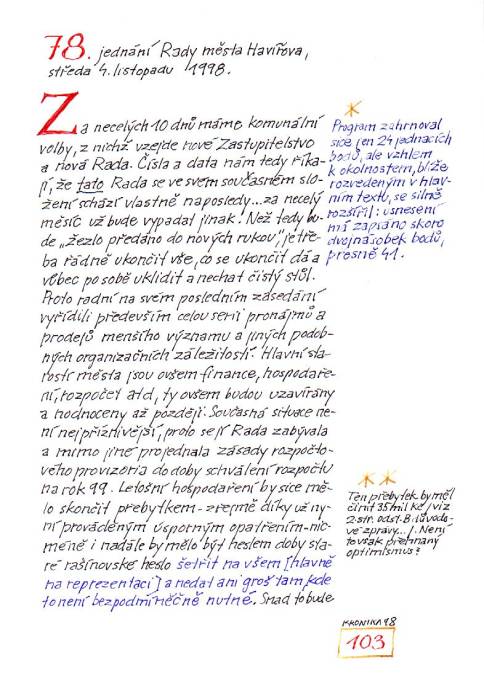 78. jednání Rady města Havířova,
středa 4. listopadu 1998.
Za necelých 10 dnů máme komunální
volby, z nichž vzejde nové Zastupitelstvo
a nová Rada. Čísla a data nám tedy říka-
jí, že tato Rada se ve svém současném slo-
žení schází vlastně naposledy...za necelý
měsíc už bude vypadat jinak! Než tedy bu-
de „žezlo předáno do nových rukou", je tře-
ba řádně ukončit vše, co se ukončit dá a
vůbec po sobě uklidit a nechat čistý stůl.
Proto radní na svém posledním zasedání
vyřídili především celou serii pronájmů a
prodejů menšího významu a jiných podob-
ných organizačních záležitostí. Hlavní sta-
rostí města jsou ovšem finance, hospodaře-
ní, rozpočet atd, ty ovšem budou uzavírány
a hodnoceny až později. Současná situace ne-
ní nejpříznivější, proto se jí Rada zabývala
a mimo jiné projednala zásady rozpočto-
vého provizoria do doby schválení rozpočtu
na rok 99. Letošní hospodaření by sice mě-
lo skončit přebytkem - zřejmě díky už ny-
ní prováděným úsporným opatřením - nic-
méně i nadále by mělo být heslem doby sta-
ré rašínovské heslo šetřit na všem [hlavně
na reprezentaci] a nedat ani groš tam, kde
to není bezpodmínečně nutné. Snad to bude
Program zahrnoval
sice jen 24 jednacích
bodů, ale vzhlem
k okolnostem, blíže
rozvedeným v hlav-
ním textu, se silně
rozšířil: usnesení
má zapsáno skoro
dvojnásobek bodů,
přesně 41.
Ten přebytek by měl
činit 35 mil Kč /viz
2. str. odst. B důvodo-
vé zprávy.../. Není
to však přehnaný
optimismus?
KRONIKA 98
103